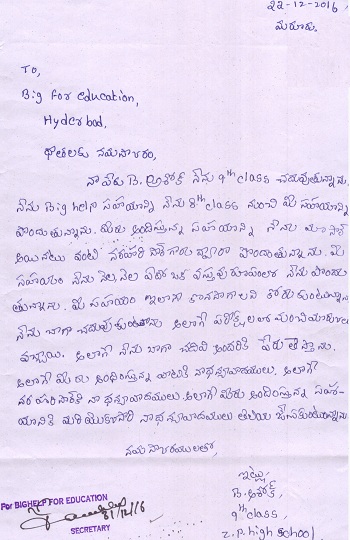 22-12-2016
మరూరు.
To,
Big for education,
Hyderbad,
దాతలకు నమస్కారం,
నా పేరు B. అశోక్ నేను 9th class చదువుతున్నాను.
నేను Big help సహాయాన్ని నేను 8th class నుంచి మీ సహాయాన్ని
పొందుతున్నాను. మీరు అందిస్తున్న సహాయాన్ని నేను మా సార్
అయినటు వంటి నరహరి సార్ గారు ద్వారా పొందుతున్నాను. మీ
సహాయం నేను నెల నెల ఏదో ఒక వస్తువు రూపంలో నేను పొందు
తున్నాను. మీ సహాయం ఇలాగే కొనసాగాలని కోరుకుంటున్నాను
నేను బాగా చదువుకుంటాను అలాగే పరీక్షలలో మంచి మార్కులు
వచ్చాయి. అలాగే నేను బాగా చదివి అందరికి పేరు తెస్తాను.
అలాగే మీరు అందిస్తున్న వాటికి నా ధన్యవాదములు. అలాగే
నరహరి సార్ కి నా ధన్యవాదములు అలాగే మీరు అందిస్తున్న సహా-
యానికి మరి యొకసారి నా ధన్యవాదములు తెలియ జేసుకుంటున్నాను.
నమస్కారములతో,
ఇట్లు,
B. అశోక్,
9th class,
z.p. high school.
For BIGHELP FOR EDUCATION
31/12/16
SECRETARY